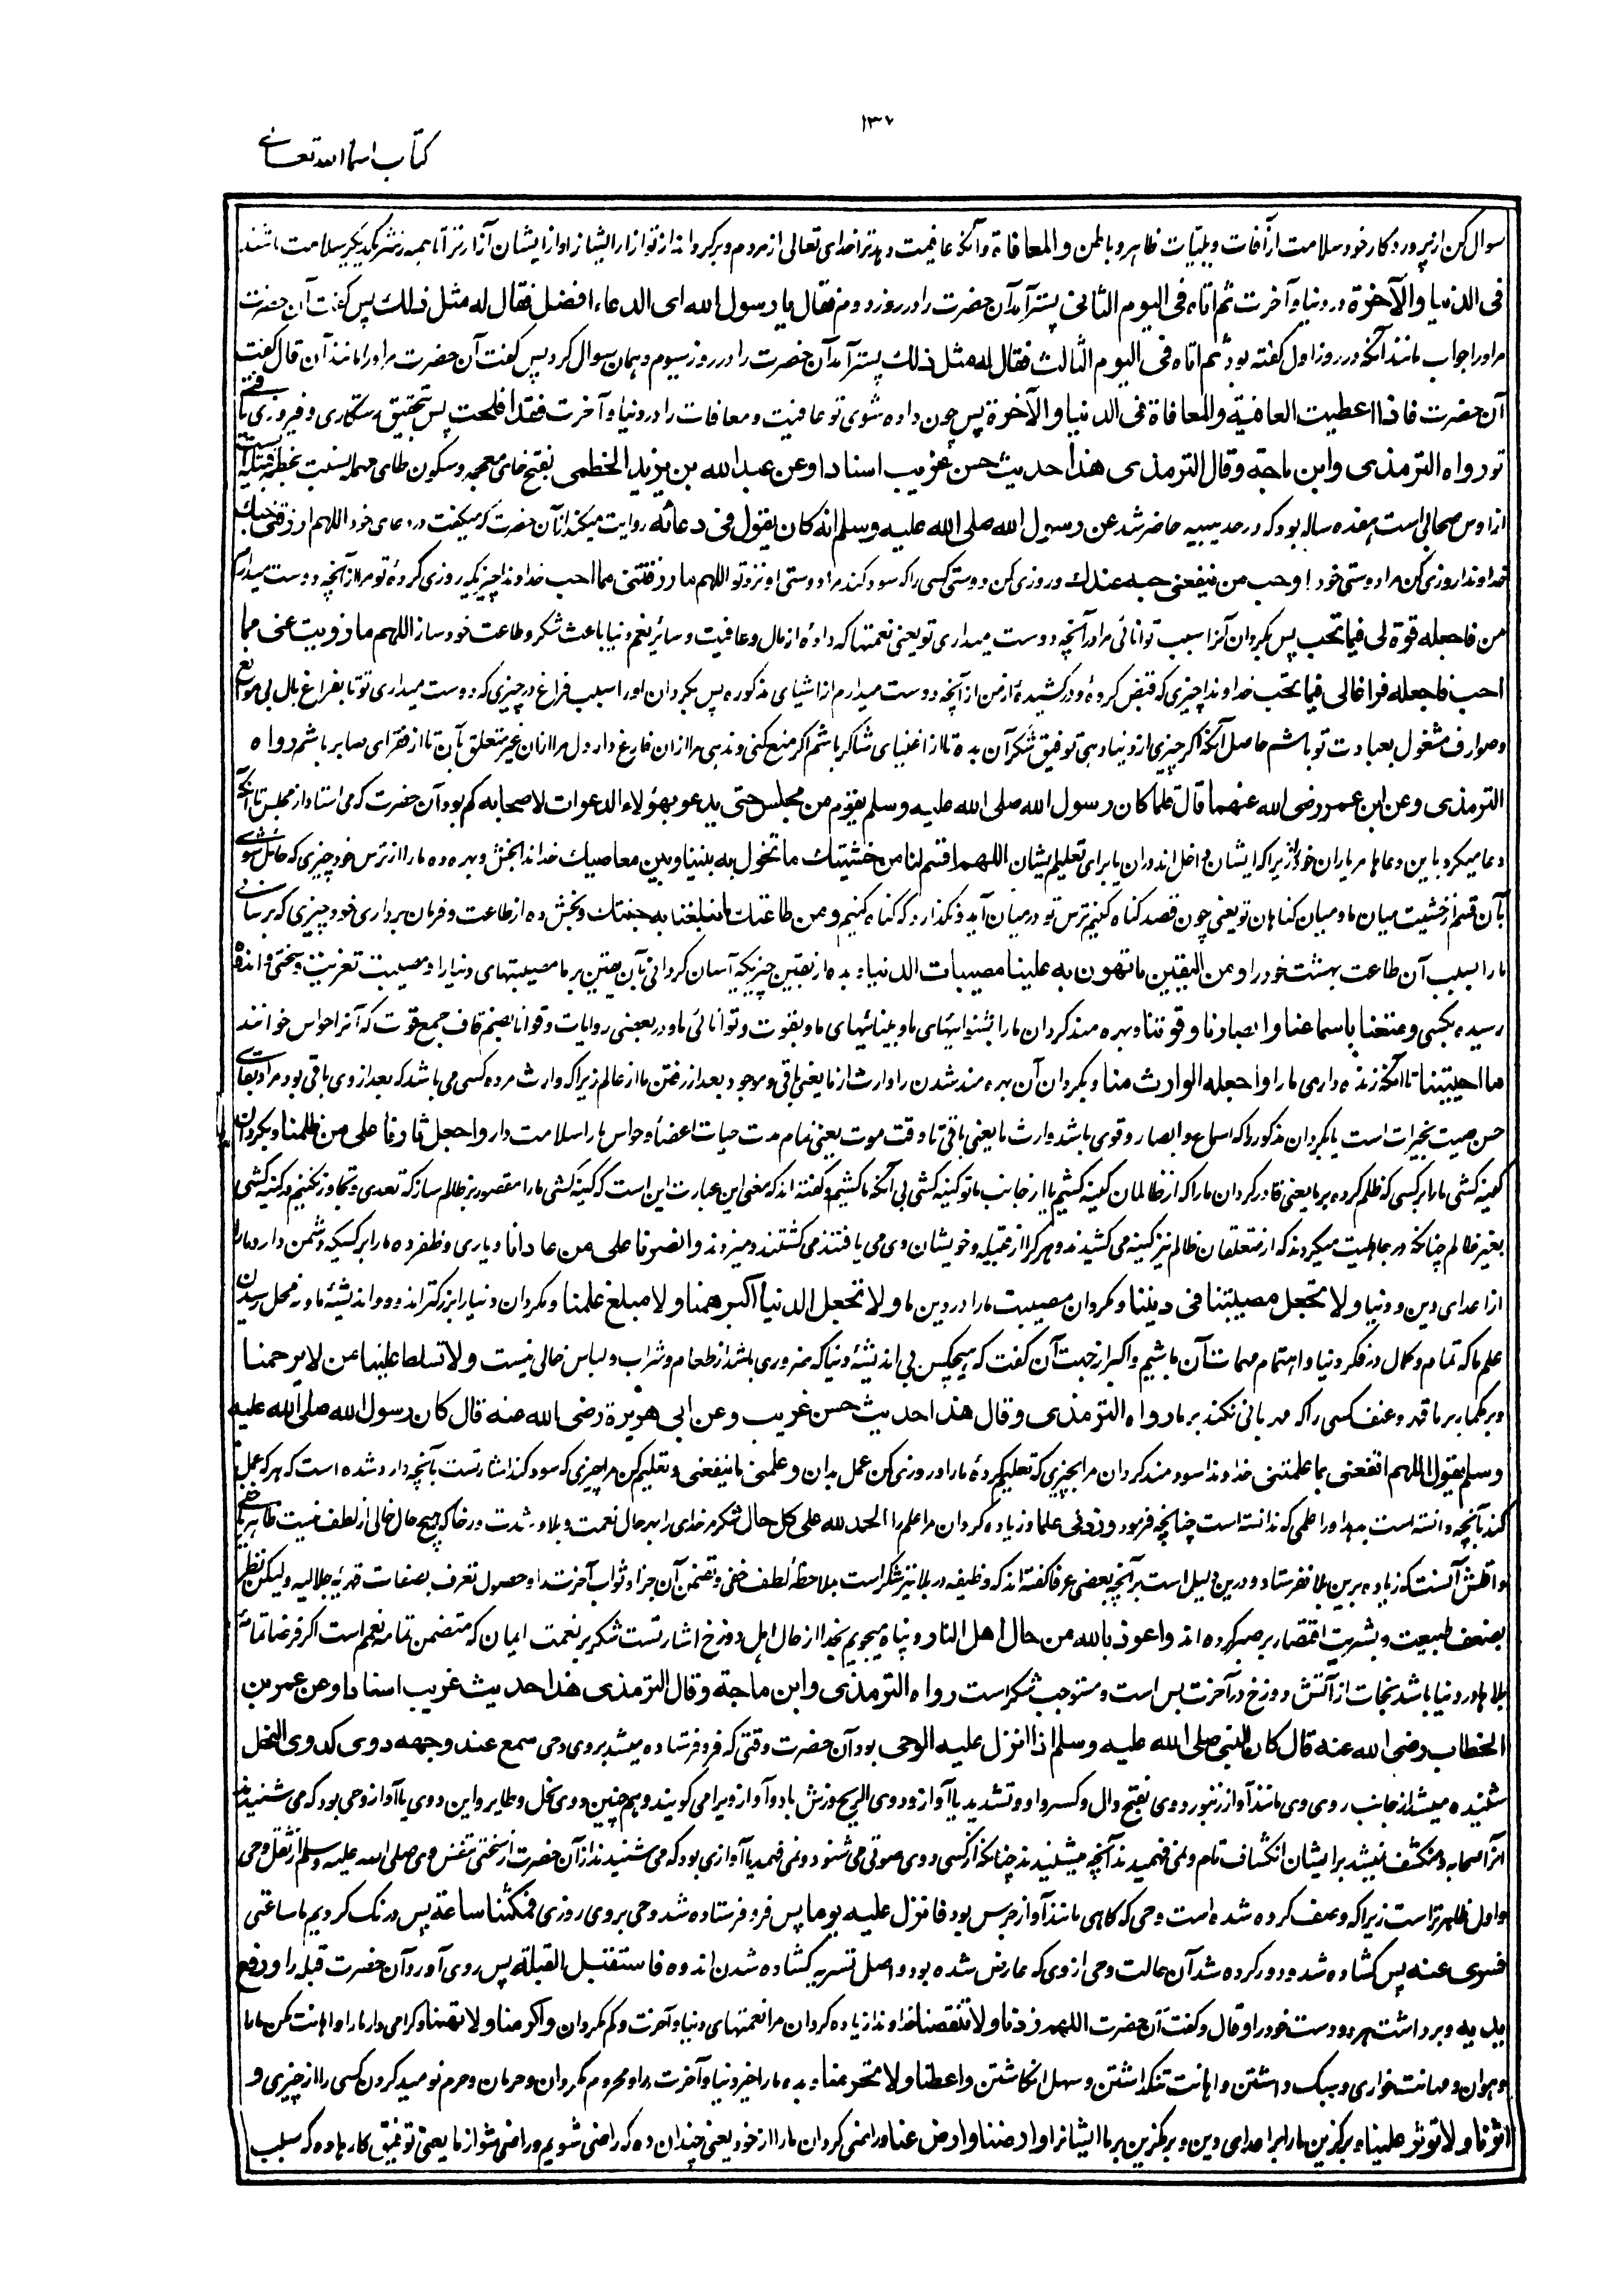 ۱۳۲
کتاب اسماء الله تعالی
سوال کن از پروردگار خود سلامت از آفات و بلیات ظاهر و باطن والمعافاة و آنکه عافیت دهد ترا خدای تعالی از مردم و برگرداند از تو آزار ایشان را و از ایشان آزار ترا تا همه از شر یکدیگر سلامت باشند
فی الدنیا والآخرة در دنیا و آخرت ثم اتاه فی الیوم الثانی پستر آمد آن حضرت را در روز دوم فقال یا رسول الله ای الدعاء افضل فقال له مثل ذلك پس گفت آن حضرت
مر او را جواب مانند آنکه در روز اول گفته بود ثم اتاه فی الیوم الثالث فقال له مثل ذلك پستر آمد آن حضرت را در روز سیوم و همان سوال کرد پس گفت آن حضرت مر او را مانند آن قال گفت
آن حضرت فاذا اعطیت العافیة والمعافاة فی الدنیا والآخرة پس چون داده شوی تو عافیت و معافات را در دنیا و آخرت فقد افلحت پس بتحقیق رستگاری و فیروزی یافتی
تو رواه الترمذی وابن ماجة وقال الترمذی هذا حدیث حسن غریب اسنادا وعن عبد الله بن یزید الخطمی بفتح خای معجمه و سکون طای مهمله نسبت بخطمه قبیله ایست
از اوس صحابی است هفده ساله بود که در حدیبیه حاضر شد عن رسول الله صلی الله علیه وسلم انه کان یقول فی دعائه روایت میکند از آن حضرت که میگفت در دعای خود اللهم ارزقنی حبك
خداوندا روزی کن مرا دوستی خود را وحب من ینفعنی حبه عندك و روزی کن دوستی کسی را که سود کند مرا دوستی او نزد تو اللهم ما رزقتنی مما احب خداوندا چیزیکه روزی کردۀ تو مرا از آنچه دوست میدارم
من فاجعله قوة لی فیما تحب پس بگردان آنرا سبب توانائی مرا در آنچه دوست میداری تو یعنی نعمتها که دادۀ از مال و عافیت و سائر نعم دنیا باعث شکر و طاعت خود ساز اللهم ما زویت عنی مما
احب فاجعله فراغا لی فیما تحب خداوندا چیزی که قبض کردۀ و در کشیدۀ از من از آنچه دوست میدارم از اشیای مذکوره پس بگردان او را سبب فراغ در چیزی که دوست میداری تو تا بفراغ بال بی موانع
و صوارف مشغول بعبادت تو باشم حاصل آنکه اگر چیزی از دنیا دهی توفیق شکر آن بده تا از اغنیای شاکر باشم اگر منع کنی و ندهی مرا از ان فارغ دار دل مرا از ان غیر متعلق بآن تا از فقرای صابر باشم رواه
الترمذی وعن ابن عمر رضی الله عنهما قال قلما کان رسول الله صلی الله علیه وسلم یقوم من مجلس حتی یدعو بهؤلاء الدعوات لاصحابه کم بود آن حضرت که می استاد از مجلس تا آنکه
دعا میکرد باین دعاها مر یاران خود را زیرا که ایشان داخل اند در ان یا برای تعلیم ایشان اللهم اقسم لنا من خشیتك ما تحول به بیننا وبین معاصیك خداوندا بخش و بهره ده ما را از ترس خود چیزی که حائل شوی
بآن قسم از خشیت میان ما و میان گناهان تو یعنی چون قصد گناه کنیم ترس تو درمیان آید و نگذارد که گناه کنیم ومن طاعتك ما تبلغنا به جنتك و بخش ده از طاعت و فرمان برداری خود چیزی که برسانی
ما را بسبب آن طاعت بهشت خود را ومن الیقین ما تهون به علینا مصیبات الدنیا و بده از یقین چیزیکه آسان گردانی بآن یقین بر ما مصیبتهای دنیا را و مصیبت تعزیت و سختی و اندوه
رسیده بکسی ومتعنا باسماعنا وابصارنا وقوتنا و بهره مند گردان ما را بشنوائیهای ما و بینائیهای ما و بقوت و توانائی ما و در بعضی روایات وقوانا بضم قاف جمع قوت که آنرا حواس خوانند
ما احییتنا تا آنکه زنده داری ما را واجعله الوارث منا و بگردان آن بهره مند شدن را وارث از ما یعنی باقی و موجود بعد از رفتن ما از عالم زیرا که وارث مرده کسی می باشد که بعد از وی باقی بود مراد بقای
حسن صیت بخیرات است یا بگردان مذکور را که اسماع و ابصار و قوی باشد وارث ما یعنی باقی تا وقت موت یعنی تمام مدت حیات اعضا و حواس ما را سلامت دار واجعل ثأرنا علی من ظلمنا و بگردان
کینه کشی ما را بر کسی که ظلم کرده بر ما یعنی قادر گردان ما را که از ظالمان کینه کشیم یا از جانب ما تو کینه کشی بی آنکه ما کشیم و گفته اند که معنی این عبارت این است که کینه کشی ما را مقصور بر ظالم ساز که تعدی و تجاوز نکنیم بکینه کشی
بغیر ظالم چنانکه در جاهلیت میکردند که از متعلقان ظالم نیز کینه می کشیدند و هر کرا از قبیله و خویشان وی می یافتند می کشتند و میزدند وانصرنا علی من عادانا و یاری و ظفر ده ما را بر کسیکه دشمن دارد ما را
از اعدای دین و دنیا ولا تجعل مصیبتنا فی دیننا و مگردان مصیبت ما را در دین ما ولا تجعل الدنیا اکبر همنا ولا مبلغ علمنا و مگردان دنیا را بزرگتر اندوه و اندیشۀ ما و نه محل رسیدن
علم ما که تمام و کمال در فکر دنیا و اهتمام مهمات آن باشیم و اکبر از جهت آن گفت که هیچکس بی اندیشۀ دنیا که ضروری باشد از طعام و شراب و لباس خالی نیست ولا تسلط علینا من لا یرحمنا
و بر مگمار بر ما قهر و عنف کسی را که مهربانی نکند بر ما رواه الترمذی وقال هذا حدیث حسن غریب وعن ابی هریرة رضی الله عنه قال کان رسول الله صلی الله علیه
وسلم یقول اللهم انفعنی بما علمتنی خداوندا سودمند گردان مرا بچیزی که تعلیم کردۀ ما را و روزی کن عمل بدان وعلمنی ما ینفعنی و تعلیم کن مرا چیزی که سود کند اشارتست بآنچه وارد شده است که هر که عمل
کند بآنچه دانسته است بدهد او را علمی که ندانسته است چنانچه فرمود وزدنی علما و زیاده گردان مرا علم را الحمد لله علی کل حال شکر مر خدای را بهر حال نعمت و بلا و شدت و رخا که هیچ حال خالی از لطف نیست ظاهر یا خفی
و اقلش آنست که زیاده برین بلا نفرستاد و درین دلیل است بر آنچه بعضی عرفا گفته اند که وظیفه در بلا نیز شکر است بملاحظۀ لطف خفی و تضمن آن جزا و ثواب آخرت را و حصول تعرف بصفات قهریۀ جلالیه ولیکن نظر
بضعف طبیعت و بشریت اقتصار بر صبر کرده اند واعوذ بالله من حال اهل النار و پناه میجویم بخدا از حال اهل دوزخ اشارتست شکر بر نعمت ایمان که متضمن تمامه نعم است اگر فرضا تمامۀ
بلاها در دنیا باشد نجات از آتش دوزخ در آخرت بس است و مستوجب شکر است رواه الترمذی وابن ماجة وقال الترمذی هذا حدیث غریب اسنادا وعن عمر بن
الخطاب رضی الله عنه قال کان النبی صلی الله علیه وسلم اذا انزل علیه الوحی بود آن حضرت وقتی که فرو فرستاده میشد بر وی وحی سمع عند وجهه دوی کدوی النحل
شنیده میشد از جانب روی وی مانند آواز زنبور دوی بفتح دال و کسر واو و تشدید یا آواز و دوی الریح وزش باد و آواز ویرا می گویند و همچنین دوی نحل و طایر و این دوی یا آواز وحی بود که می شنیدند
آنرا صحابه و منکشف نمیشد بر ایشان انکشاف تام و نمی فهمیدند آنچه میشنیدند چنانکه از کسی دوی صوتی می شنود و نمی فهمد یا آوازی بود که می شنیدند از آن حضرت از سختی تنفس وی صلی الله علیه وسلم از ثقل وحی
و اول ظاهر تر است زیرا که وصف کرده شده است وحی که گاهی مانند آواز جرس بود فانزل علیه یوما پس فرو فرستاده شد وحی بر وی روزی فمکثنا ساعة پس درنگ کردیم ما ساعتی
فسری عنه پس کشاده شد و دور کرده شد آن حالت وحی از وی که عارض شده بود و اصل تسریه کشاده شدن اندوه فاستقبل القبلة پس روی آورد آن حضرت قبله را ورفع
یدیه و برداشت هر دو دست خود را وقال و گفت آن حضرت اللهم زدنا ولا تنقصنا خداوندا زیاده گردان مرا نعمتهای دنیا و آخرت و کم مگردان واکرمنا ولا تهنا و گرامی دار ما را و اهانت مکن ما را
و هوان و مهانت خواری و سبک داشتن و اهانت تنگ داشتن و سهل انگاشتن واعطنا ولا تحرمنا و بده ما را خیر دنیا و آخرت را و محروم مگردان و حرمان و حرم نومید کردن کسی را از چیزی و
اثرنا ولا تؤثر علینا و برگزین ما را بر اعدای دین و بر مگزین بر ما ایشانرا وارضنا وارض عنا و راضی گردان ما را از خود یعنی چندان ده که راضی شویم و راضی شو از ما یعنی توفیق کارها ده که سبب